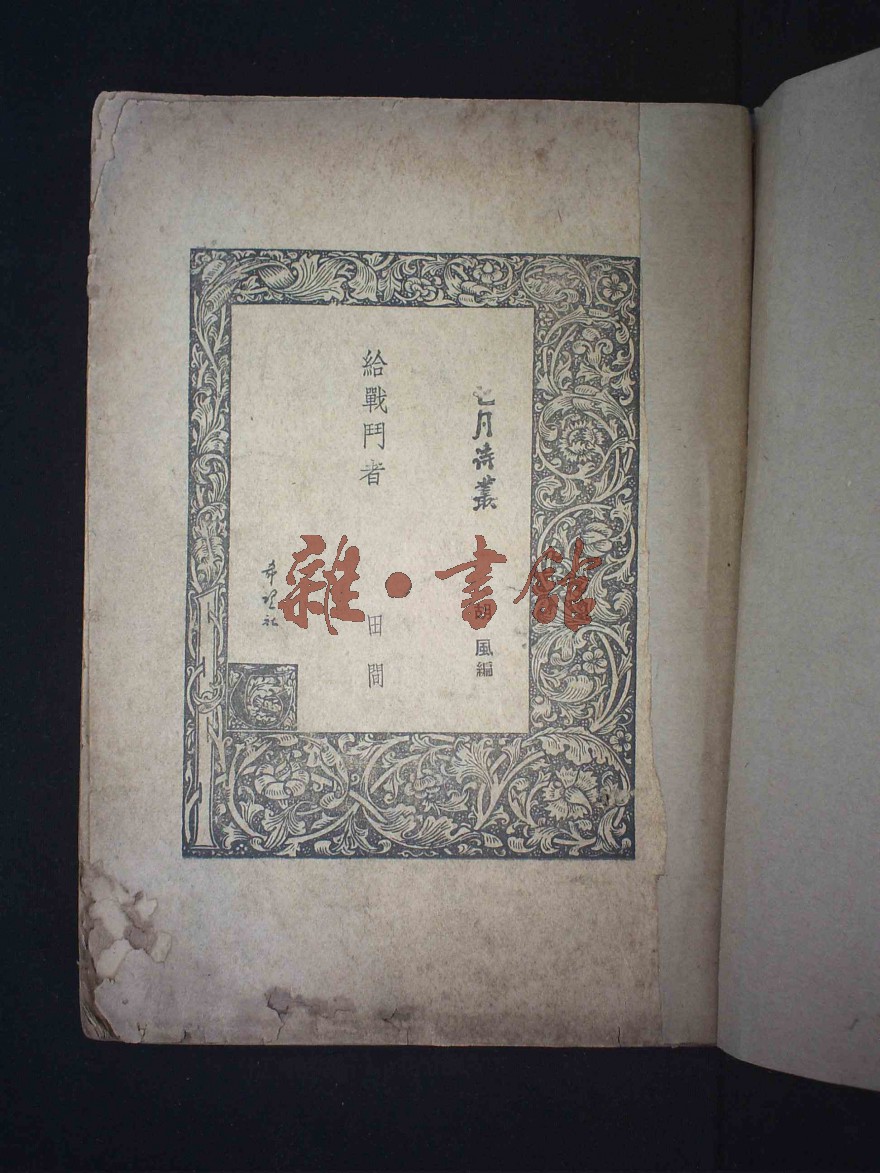 七月诗叢
胡風編
給戰鬥者
田間
希望社
雜·書館